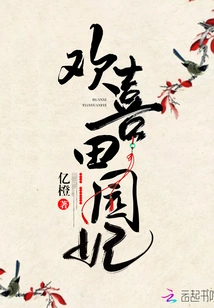 欢喜田园妃
HUANXI
TIANYUANFEI
亿橙 著
云起书院